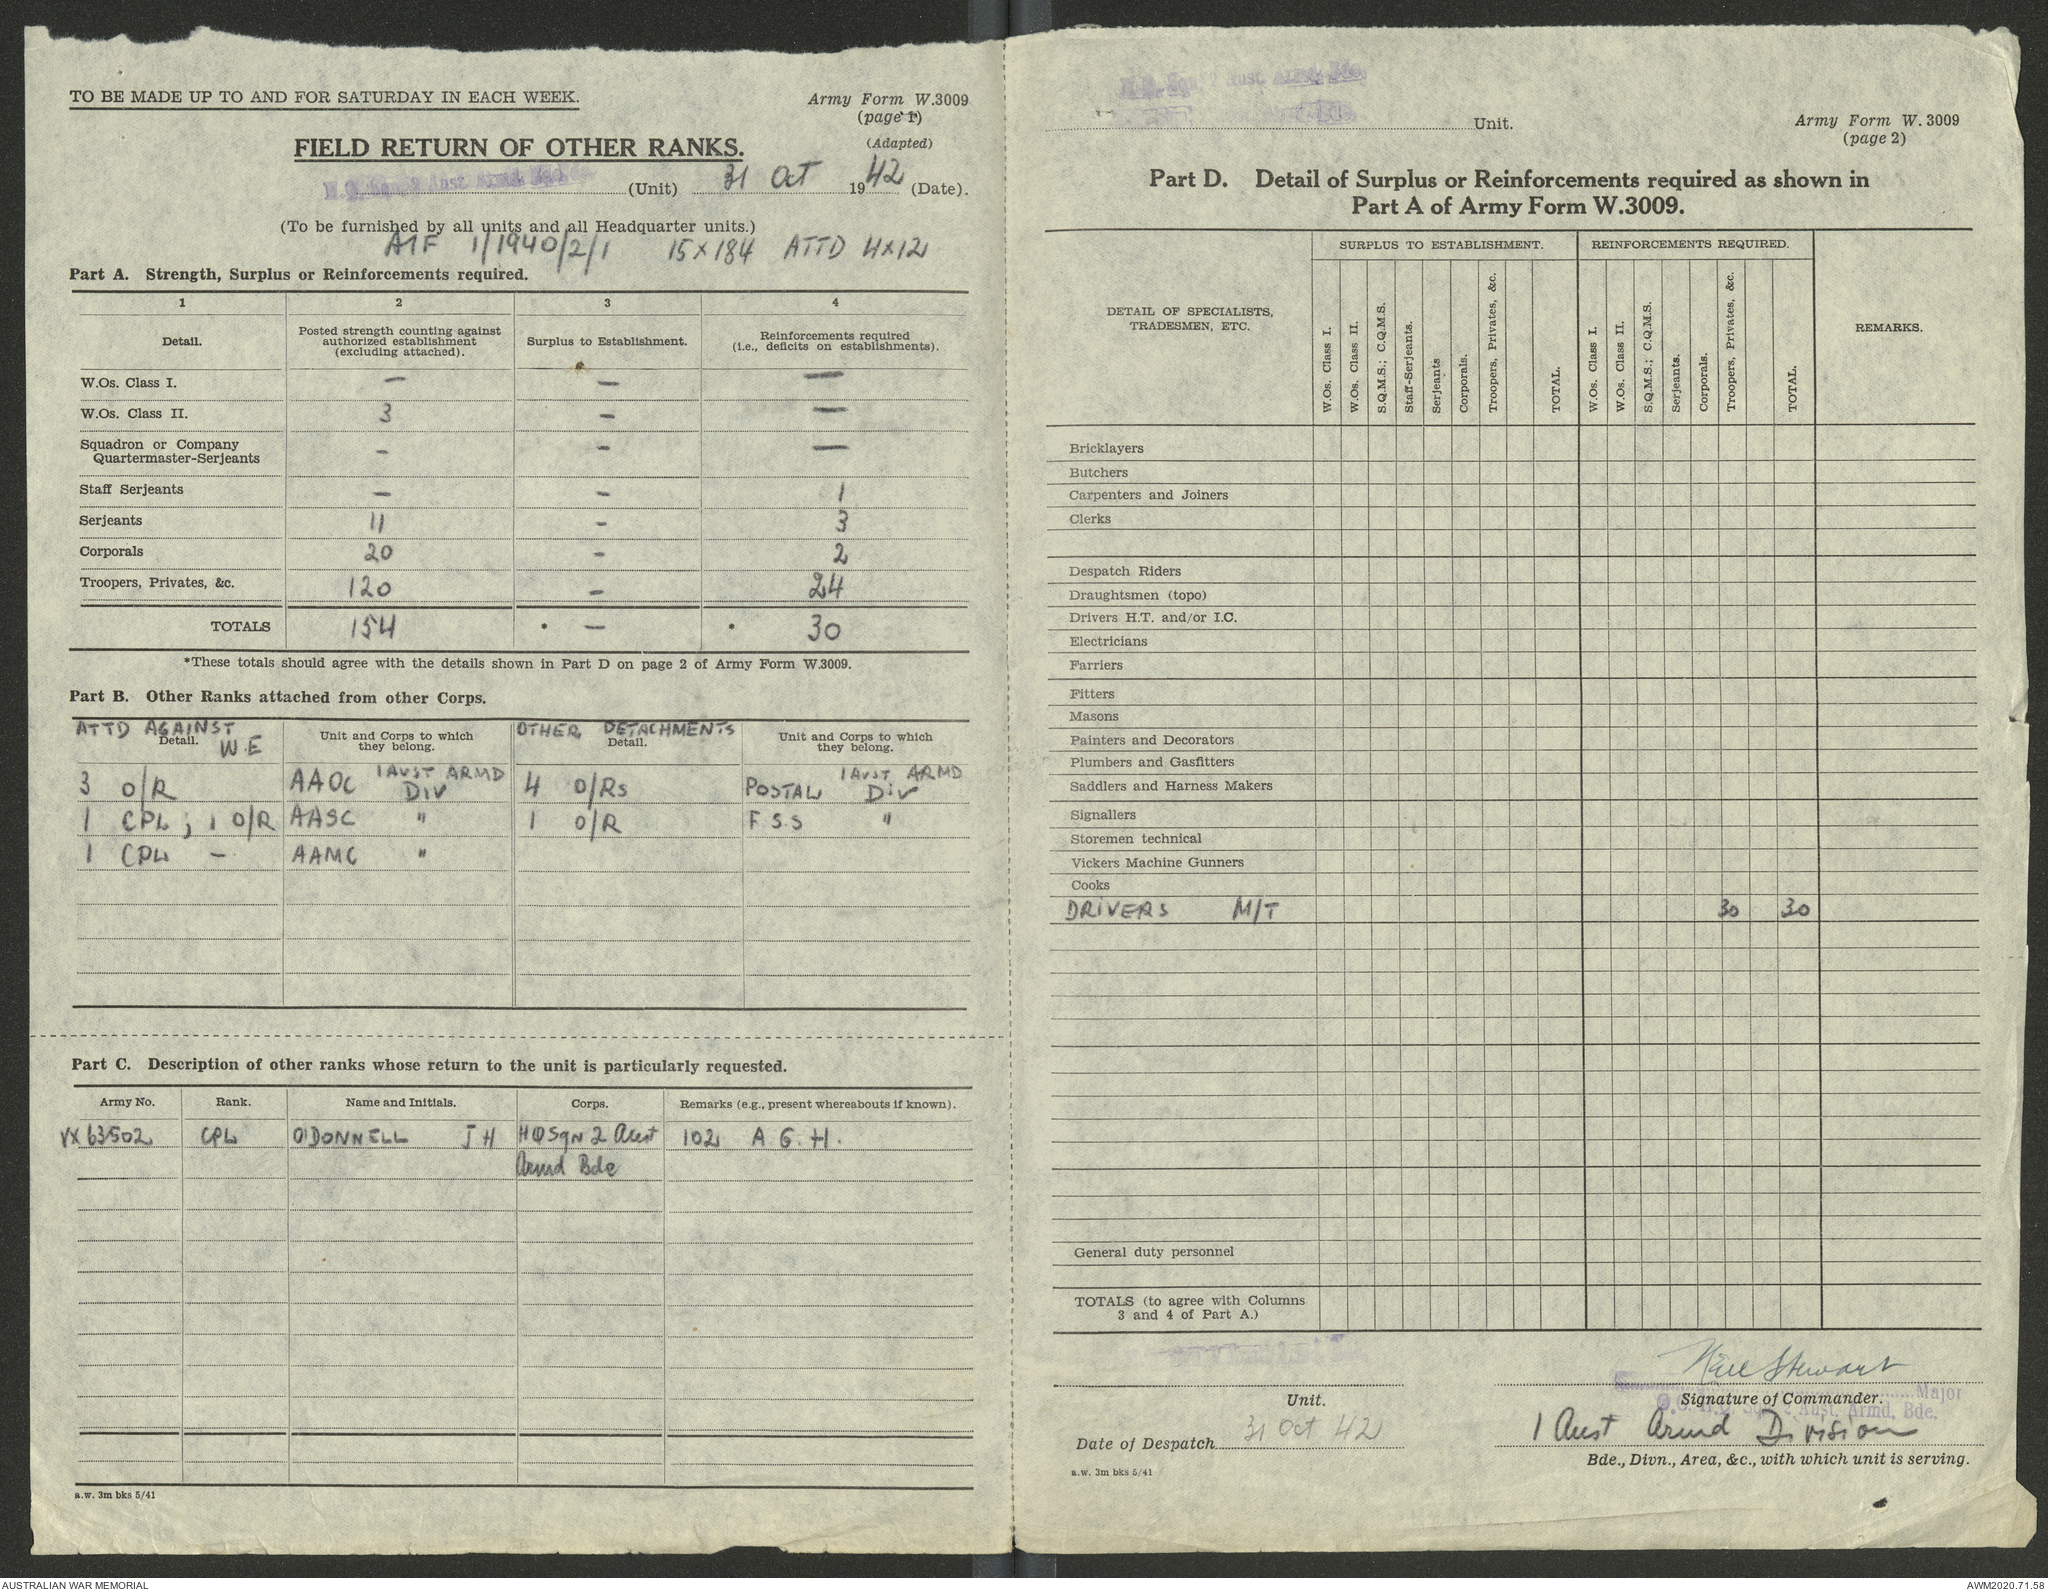 TO BE MADE UP TO AND FOR SATURDAY IN EACH WEEK.
Army Form W.3009
(page 1)
(Adapted)
FIELD RETURN OF OTHER RANKS.
H.Q. Sqn. 2 Aust. Armd. Bde. (Unit) 31 Oct 1942 (Date).
(To be furnished by all units and all Headquarter units.)
AIF 1/1940/2/1 15 x 184 ATTD 4 x 12
Part A. Strength, Surplus or Reinforcements required.
1 2 3 4
Detail. Posted strength counting against authorized establishment (excluding attached). Surplus to Establishment. Reinforcements required (i.e., deficits on establishments).
W.Os. Class I. — — —
W.Os. Class II. 3 — —
Squadron or Company
Quartermaster-Serjeants - — —
Staff Serjeants — — 1
Serjeants 11 - 3
Corporals 20 - 2
Troopers, Privates, &c. 120 - 24
TOTALS 154 * — * 30
*These totals should agree with the details shown in Part D on page 2 of Army Form W.3009.
Part B. Other Ranks attached from other Corps.
ATTD AGAINST W.E OTHER DETACHMENTS
Detail. Unit and Corps to which they belong. Detail. Unit and Corps to which they belong.
3 O/R AAOC 1 AUST ARMD DIV 4 O/Rs POSTAL 1 AUST ARMD DIV
1 CPL ; 1 O/R AASC " 1 O/R F.S.S "
1 CPL — AAMC "
Part C. Description of other ranks whose return to the unit is particularly requested.
Army No. Rank. Name and Initials. Corps. Remarks (e.g., present whereabouts if known).
VX63502 CPL O'DONNELL J H HQ Sqn 2 Aust 102 A.G.H.
Armd Bde
a.w. 3m bks 5/41
H.Q. Sqn. 2 Aust. Armd. Bde.
Unit.
Army Form W. 3009
(page 2)
Part D. Detail of Surplus or Reinforcements required as shown in
Part A of Army Form W.3009.
DETAIL OF SPECIALISTS, TRADESMEN, ETC.
SURPLUS TO ESTABLISHMENT.
W.Os. Class I.
W.Os. Class II.
S.Q.M.S.; C.Q.M.S.
Staff-Serjeants.
Serjeants
Corporals.
Troopers, Privates, &c.
TOTAL.
REINFORCEMENTS REQUIRED.
W.Os. Class I.
W.Os. Class II.
S.Q.M.S.; C.Q.M.S.
Serjeants.
Corporals.
Troopers, Privates, &c.
TOTAL.
REMARKS.
Bricklayers
Butchers
Carpenters and Joiners
Clerks
Despatch Riders
Draughtsmen (topo)
Drivers H.T. and/or I.C.
Electricians
Farriers
Fitters
Masons
Painters and Decorators
Plumbers and Gasfitters
Saddlers and Harness Makers
Signallers
Storemen technical
Vickers Machine Gunners
Cooks
DRIVERS M/T 30 30
General duty personnel
TOTALS (to agree with Columns
3 and 4 of Part A.)
Unit.
Date of Despatch 31 Oct 42
a.w. 3m bks 5/41
Stewart
Major
Signature of Commander.
O.C. H.Q. Sqn. 2 Aust. Armd. Bde.
1 Aust Armd Division
Bde., Divn., Area, &c., with which unit is serving.
AUSTRALIAN WAR MEMORIAL
AWM2020.71.58